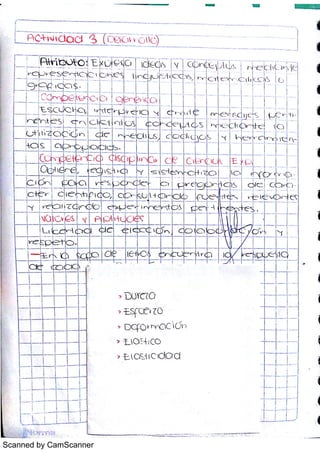 Actividad 3 (Desarrollo)
Atributo: Expresa ideas y conceptos mediante
representaciones lingüísticas, matematicas o
graficas.
Competencia generica
Escucha, interpreta y emite mensajes perti
nentes en distintos contextos mediante la
utilización de medios, codigos y herramien
tas apropiados.
Competencia disciplinar de Ciencia Exp.
Obtiene, registra y sistematiza la informa
ción para responder a preguntas de cara
cter cientifico, consultando fuentes relevantes
y realizando experimentos pertinentes.
Valores y Aptitudes
Libertad de elección, colaboración y
respeto.
—En la sopa de letras encuentra la respuesta
de cada
> Dureza
> Esfuerzo
> Deformación
> Elastico
> Elasticidad
Norma
Scanned by CamScanner